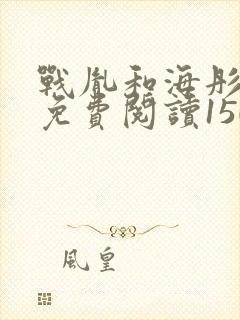 戰胤和海彤
免費閱讀15
風皇